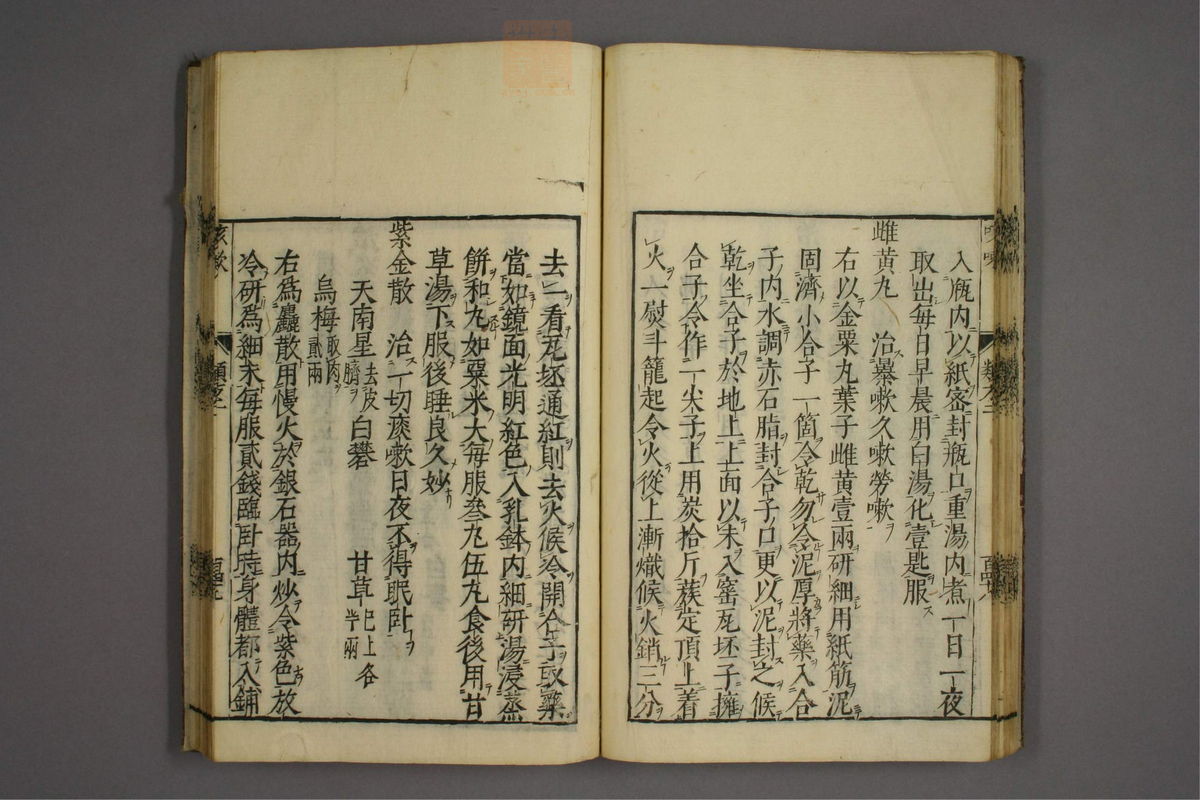 入瓶内以紙密封瓶口重湯内煮一日一夜
取出每日早晨用白湯化壹匙服
雌黄丸　治暴嗽久嗽勞嗽
右以金粟丸葉子雌黄壹兩研細用紙筋泥
固濟小合子一箇令乾勿令泥厚將藥入合
子内水調赤石脂封合子口更以泥封之候
乾坐合子於地上上面以未入窑瓦坯子擁
合子令作一尖子上用炭拾斤蔟定頂上着
火一熨斗籠起令火從上漸熾候火銷三分
去一看瓦坯通紅則去火候冷開合子取藥
當如鏡面光明紅色入乳鉢内細研湯浸蒸
餅和丸如粟米大每服叁丸伍丸食後用甘
草湯下服後睡良久妙
紫金散　治一切痰嗽日夜不得眠卧
天南星去皮臍　白礬　甘草已上各半兩
烏梅取肉貳兩
右爲麤散用慢火於銀石器内炒令紫色放
冷研爲細末每服貳錢臨卧時身體都入鋪
咳嗽
類之二